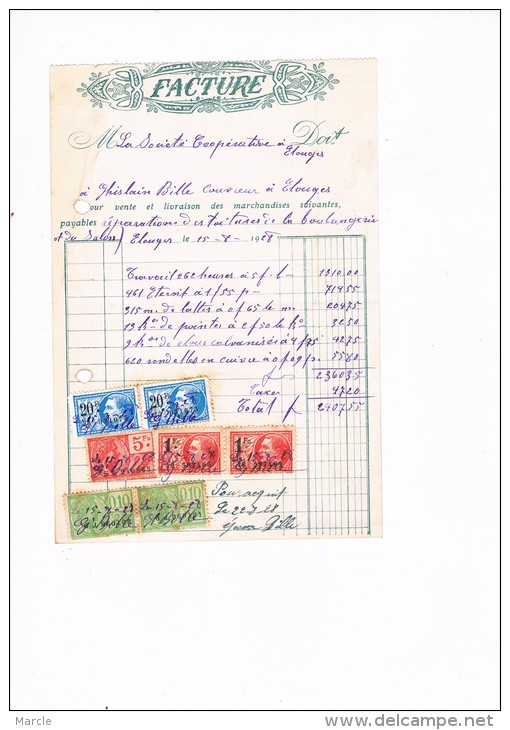 FACTURE
M La Société Coopérative à Elouges Doit
à Ghislain Bille Couvreur à Elouges
Pour vente et livraison des marchandises suivantes,
payables réparations des toitures de la boulangerie
et du Salon Elouges le 15-8-1928
Travail 262 heures à 5 f. 1310.00
461 Eternit à 1/55 p 714.55
315 m. de lattes à 0f65 le m. 204.75
13 kos de pointes à 2f50 le ko 32.50
9 kos de clous galvanisés à 4f75 42.75
620 rondelles en cuivre à 0f09 p. 55.80
2360.35
Taxe 47.20
Total f 2407.55
20 Fr 20 Fr
5 Fr 1 Fr 1 Fr
0.10 0.10
Pour acquit
Le 22-8-28
Bille
Marcle
www.delcampe.net